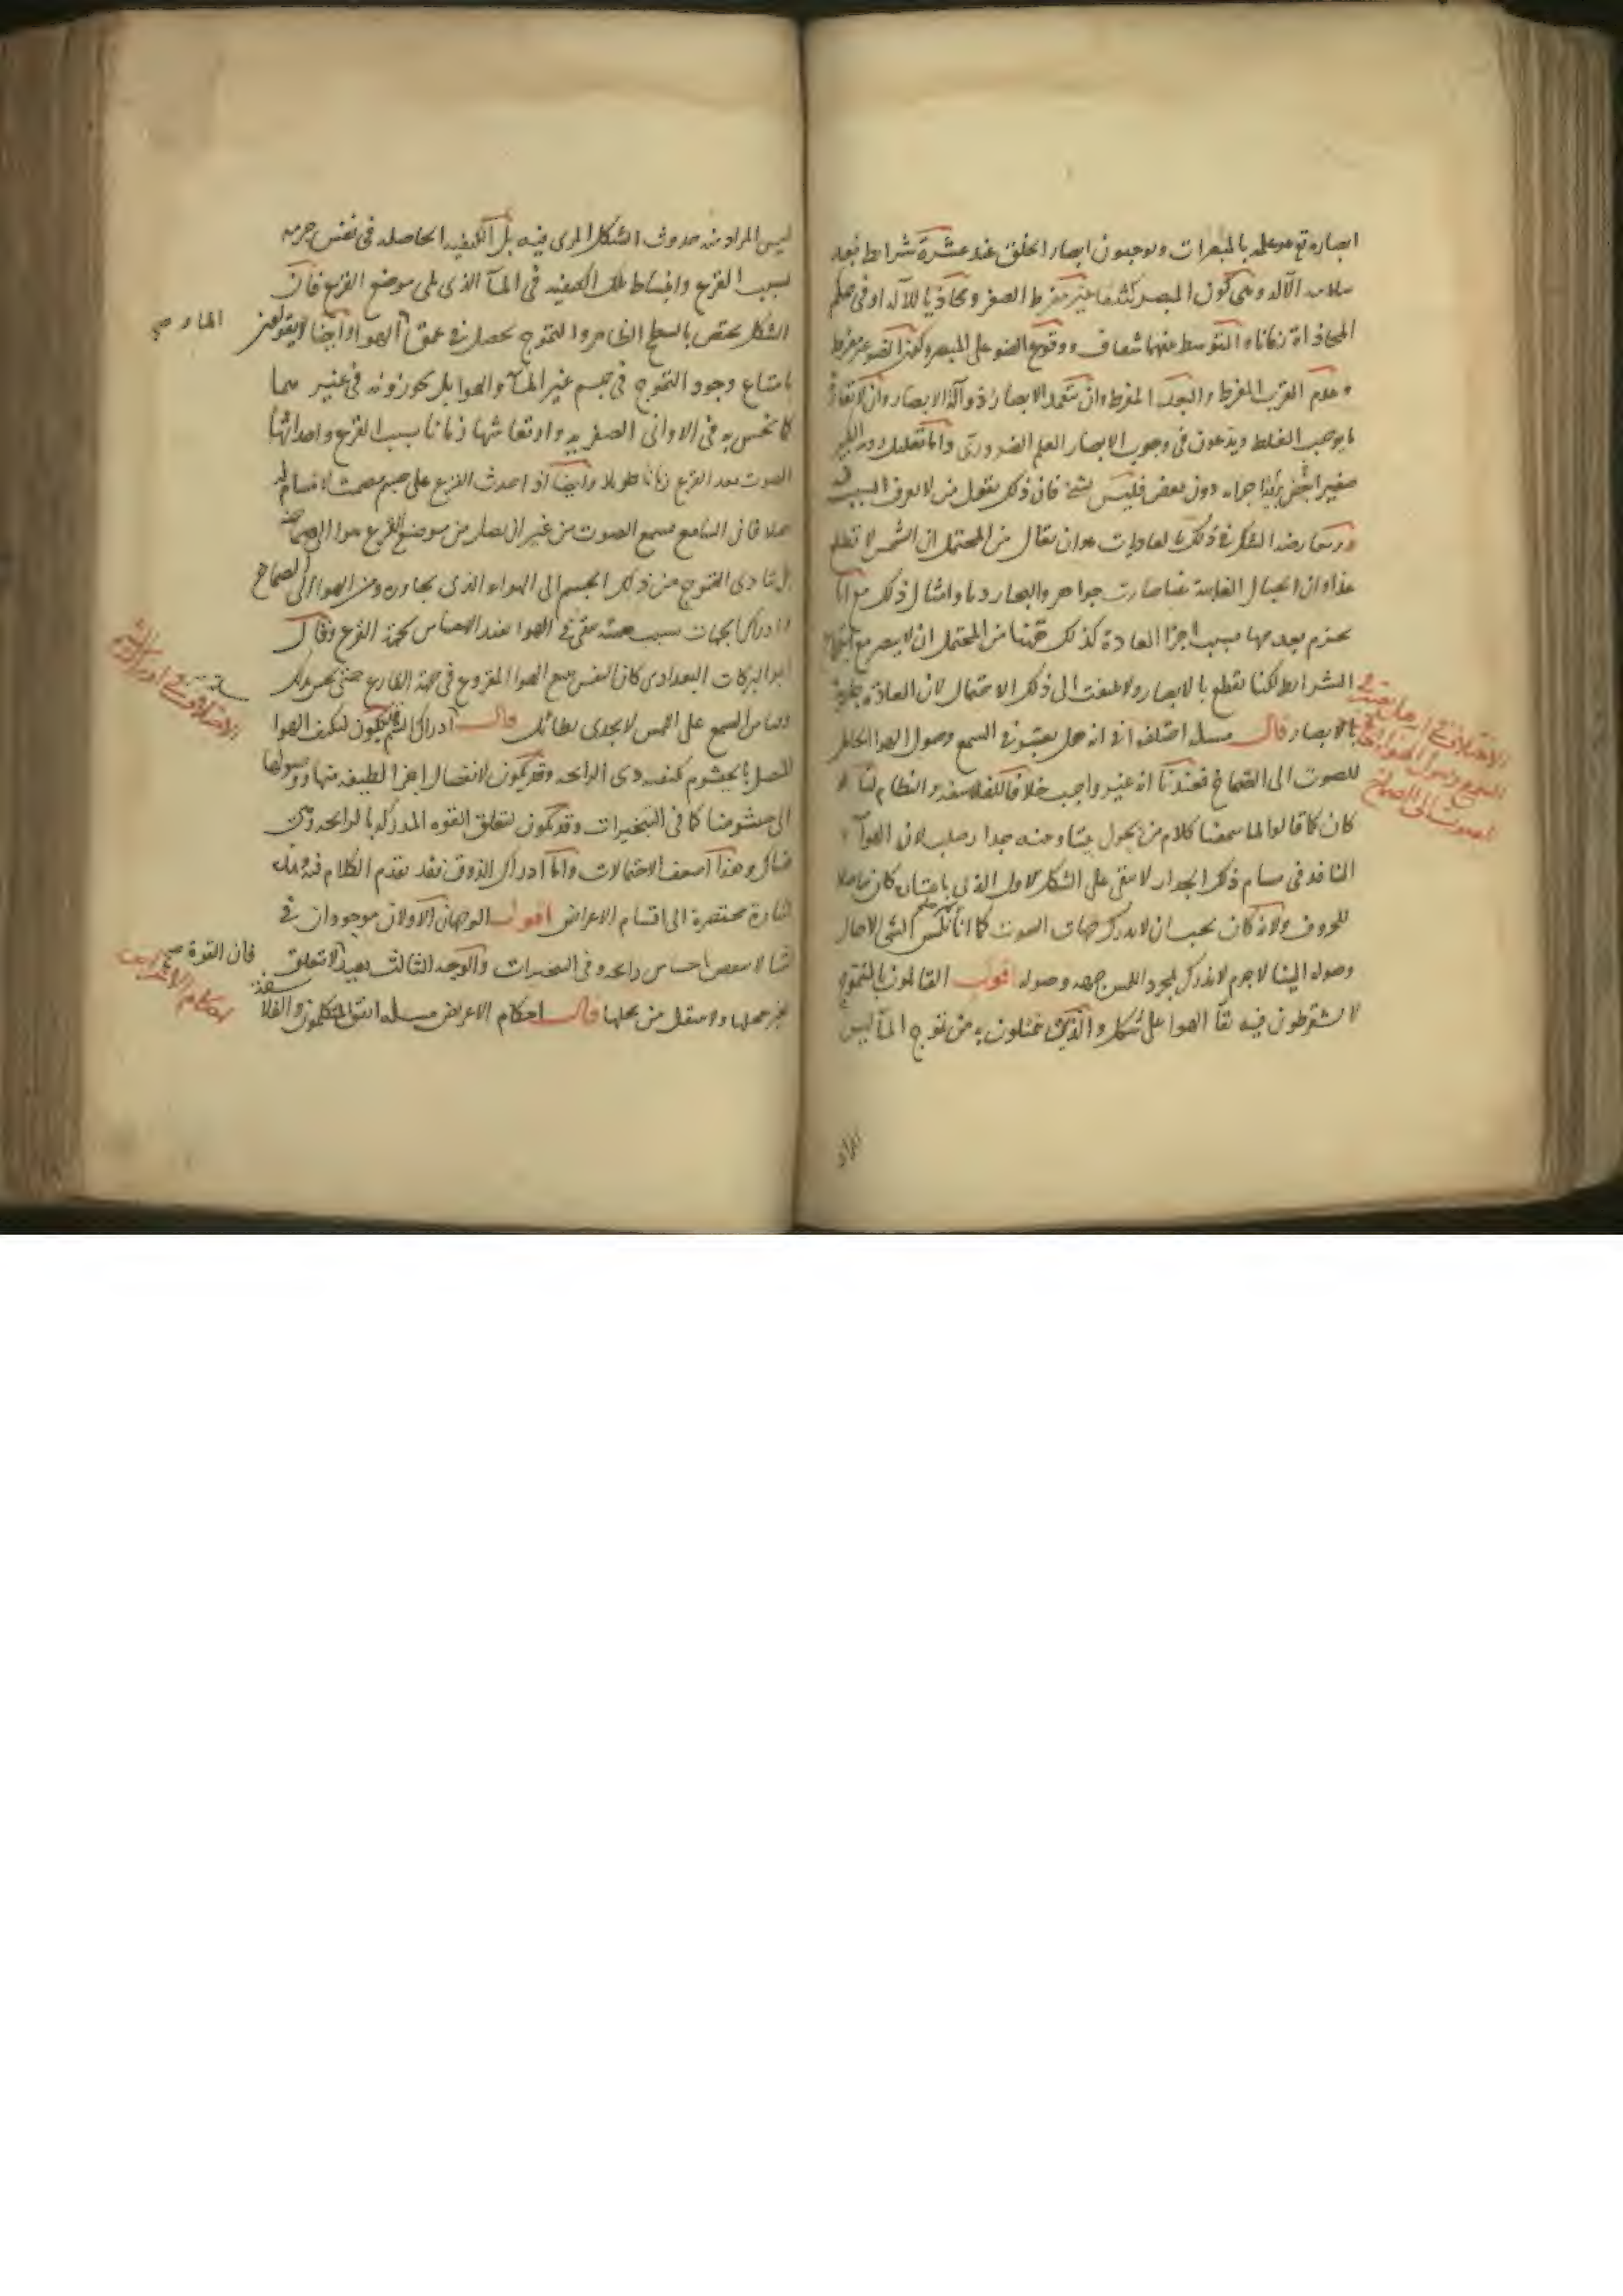 ابصاره تع هو علمه بالمبصرات ويوجبون ابصار الخلق عند عشرة شرايط بعد
سلامة الآلة وهي كون المبصر كثيفا غير مفرط الصغر ومحاذيا للآلة او في حكم
المحاذاة زمانا والمتوسط بينهما شفاف ووقوع الضو على المبصر وكون الضو غير مفرط
وعدم القرب المفرط والبعد المفرط وان يتعمد الابصار ذو آلة الابصار وان لا يقارن
ما يوجب الغلط ويدعون في وجوب الابصار العلم الضروري واما تعليله رؤية الكبير
صغيرا برؤية اجزائه دون بعض فليس بشيء فان ذلك يقول من لا يعرف السبب فيه
ومعارضة الشك في ذلك بالعاديات هو ان يقال من المحتمل ان الشمس لا تطلع
غدا وان الجبال الغايبة عنا صارت جواهر والبحار دما وامثال ذلك مع انا
نجزم بعدمها بسبب اجرا العادة كذلك ههنا من المحتمل ان لا يبصر مع اجتماع
الشرايط لكنا نقطع بالابصار ولا نلتفت الى ذلك الاحتمال لان العادة جارية
بالابصار قال مسلة اختلفوا في انه هل يعتبر في السمع وصول الهوا الحامل
للصوت الى الصماخ فعندنا انه غير واجب خلافا للفلاسفة والنظام لنا لو
كان كما قالوا لما سمعنا كلام من يحول بيننا وبينه جدار صلب لان الهوآ
النافذ في مسام ذلك الجدار لا يبقى على الشكل الاول الذي باعتباره كان حاملا
للحروف ولانه كان يجب ان لا ندرك جهات الصوت كما انا لما لم نلمس الشي الا حال
وصوله الينا لا جرم لا ندرك بمجرد اللمس جهة وصوله اقول القائلون بالتموج
لا يشترطون فيه بقآ الهوا على شكل والذي يتمثلون به من تموج المآ ليس
المراد
الاختلاف في انه هل يعتبر في
السمع وصول الهوا الحامل
للصوت الى الصماخ
ليس المراد منه حدوث الشكل المرى فيه بل الكيفية الحاصلة في نفس جرمه
بسبب القرع وانبساط تلك الكيفية في المآ الذي يلي موضع القرع فان
الشكل يختص بالسطح الظاهر والتموج يحصل في عمق الهوا وايضا لا يقولون
الماء و صح
بامتناع وجود التموج في جسم غير المآ والهوا بل يجوزونه في غيرهما
كما نحس به في الاواني الصفرية وارتعاشها زمانا بسبب القرع واحداثها
الصوت بعد القرع زمانا طويلا وايضا اذ احدث القرع على جسم مصمت لا مسام له
اصلا فان السامع يسمع الصوت من غير ان يصل من موضع القرع هوا الى صماخه
بل يتادى التموج من ذلك الجسم الى الهواء الذي يجاوره ومن الهوا الى الصماخ
وادراك الجهات بسبب هيئة تبقى في الهوا عند الاحساس بجهة القرع وقال
ابو البركات البغدادي كان النفس تتبع الهوا المقروع في جهة القارع حتى تحس بذلك
وقياس السمع على اللمس لا يجدي بطائل قال ادراك الشم قد يكون لتكيف الهوا
المتصل بالخيشوم بكيفية ذي الرايحة وقد يكون لانفصال اجزا لطيفة منها ووصولها
الى خيشومنا كما في التبخيرات وقد يكون لتعلق القوة المدركة بالرايحة وهى
هناك وهذا اضعف الاحتمالات واما ادراك الذوق فقد تقدم الكلام فيه فهذه
اشارة مختصرة الى اقسام الاعراض اقول الوجهان الاولان موجودان في
والوجه الثالث بعيد لا تتعلق
فان القوة صح
بغير محلها ولا تنتقل من محلها قال احكام الاعراض مسلة اتفق المتكلمون والفلاسفة
الاختلاف في ادراك الشم
احكام الاعراض